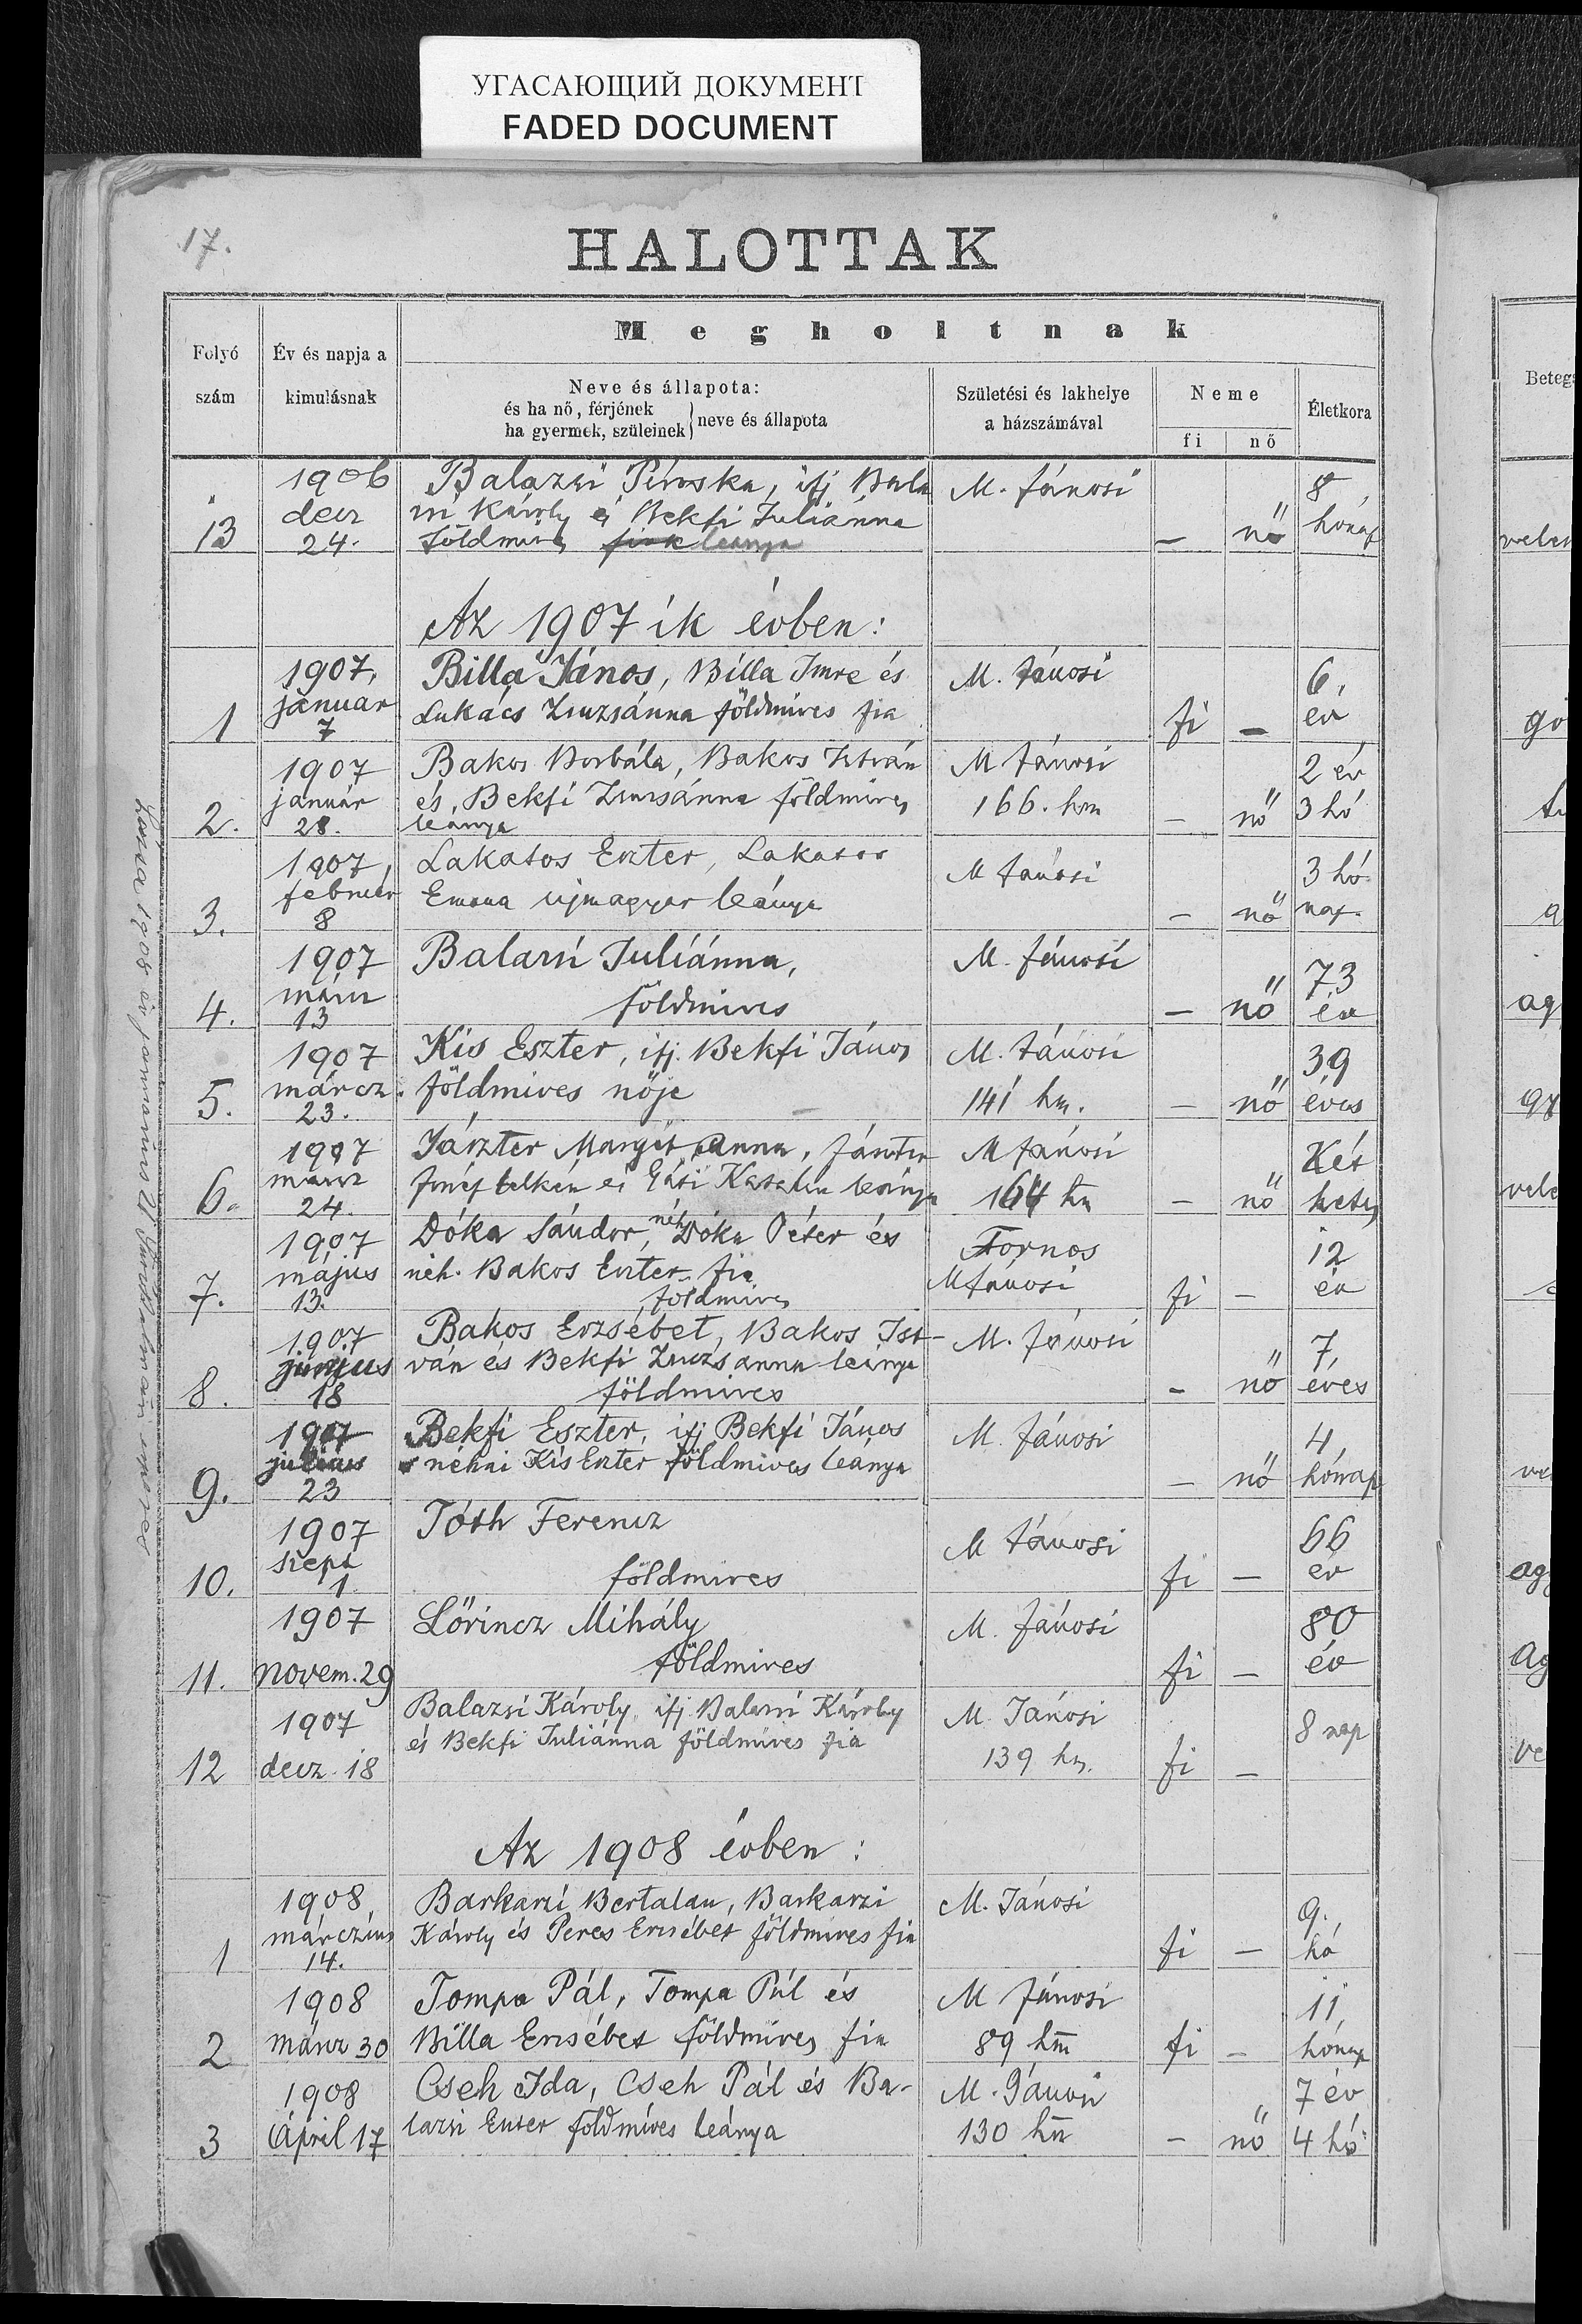 УГАСАЮЩИЙ ДОКУМЕНТ
FADED DOCUMENT
17.
HALOTTAK
Folyó szám
Év és napja a kimulásnak
Megholtnak
Neve és állapota:
és ha nő, férjének
ha gyermek, szüleinek } neve és állapota
Születési és lakhelye
a házszámával
Neme
fi nő
Életkora
13 1906 decz 24. Balazsi Piroska, ifj Bala M. Jánosi – nő 8 hónap
zsi Károly és Bekfi Juliánna
földmives leánya
Az 1907 ik évben:
1 1907, január 7 Billa János, Billa Imre és M. Jánosi fi – 6, év
Lukács Zsuzsánna földmives fia
2. 1907 január 28. Bakos Borbála, Bakos István M Jánosi 166. hsz – nő 2 év 3 hó
és Bekfi Zsuzsánna földmives
leánya
3. 1907 február 8 Lakatos Eszter, Lakatos M Jánosi – nő 3 hó nap.
Emma ujmagyar leánya
4. 1907 márcz 13 Balazsi Juliánna, M. Jánosi – nő 73 év
földmives
5. 1907 márcz. 23. Kis Eszter, ifj. Bekfi János M. Jánosi 141 hsz. – nő 39 éves
földmives nője
6. 1907 márcz 24. Jászter Margit Anna, Jászter M Jánosi 164 hsz – nő Két hetes
József és Katalin leánya
7. 1907 május 13. Dóka Sándor, néh Dóka Péter és Fornos M Jánosi fi – 12 év
néh. Bakos Eszter fia
földmives
8. 1907 junius 18 Bakos Erzsébet, Bakos Ist- M. Jánosi – nő 7, éves
ván és Bekfi Zsuzsanna leánya
földmives
9. 1907 julius 23 Bekfi Eszter, ifj Bekfi János M. Jánosi – nő 4, hónap
néhai Kis Eszter földmives leánya
10. 1907 szept 1. Tóth Ferencz M Jánosi fi – 66 év
földmives
11. 1907 novem. 29 Lőrincz Mihály M. Jánosi fi – 80 év
földmives
12 1907 decz. 18 Balazsi Károly, ifj Balazsi Károly M. Jánosi 139 hsz. fi – 8 nap
és Bekfi Juliánna földmives fia
Az 1908 évben:
1 1908, márczius 14. Barkaszi Bertalan, Barkaszi M. Jánosi fi – 9. hó
Károly és Peres Erzsébet földmives fia
2 1908 márcz 30 Tompa Pál, Tompa Pál és M Jánosi 89 hsz fi – 11 hónap
Billa Erzsébet földmives fia
3 1908 Ápril 17 Cseh Ida, Cseh Pál és Ba- M. Jánosi 130 hsz – nő 7 év 4 hó
lazsi Eszter földmives leánya